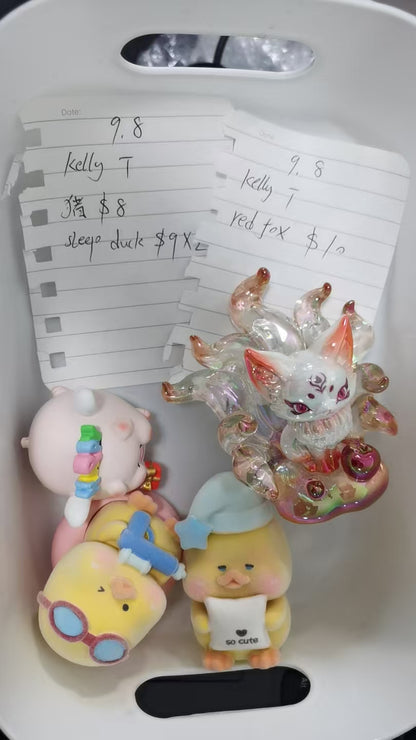 Date:
9.8
Kelly T
猪 $8
sleep duck $9X2
Date:
9.8
Kelly T
red fox $10
so cute